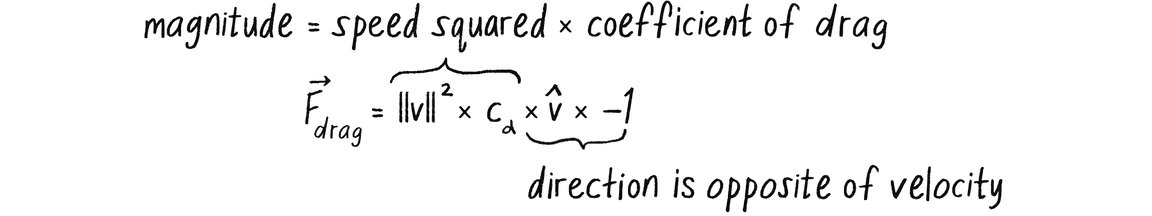 magnitude = speed squared × coefficient of drag
F⃗drag = ||v||² × cd × v̂ × −1
direction is opposite of velocity